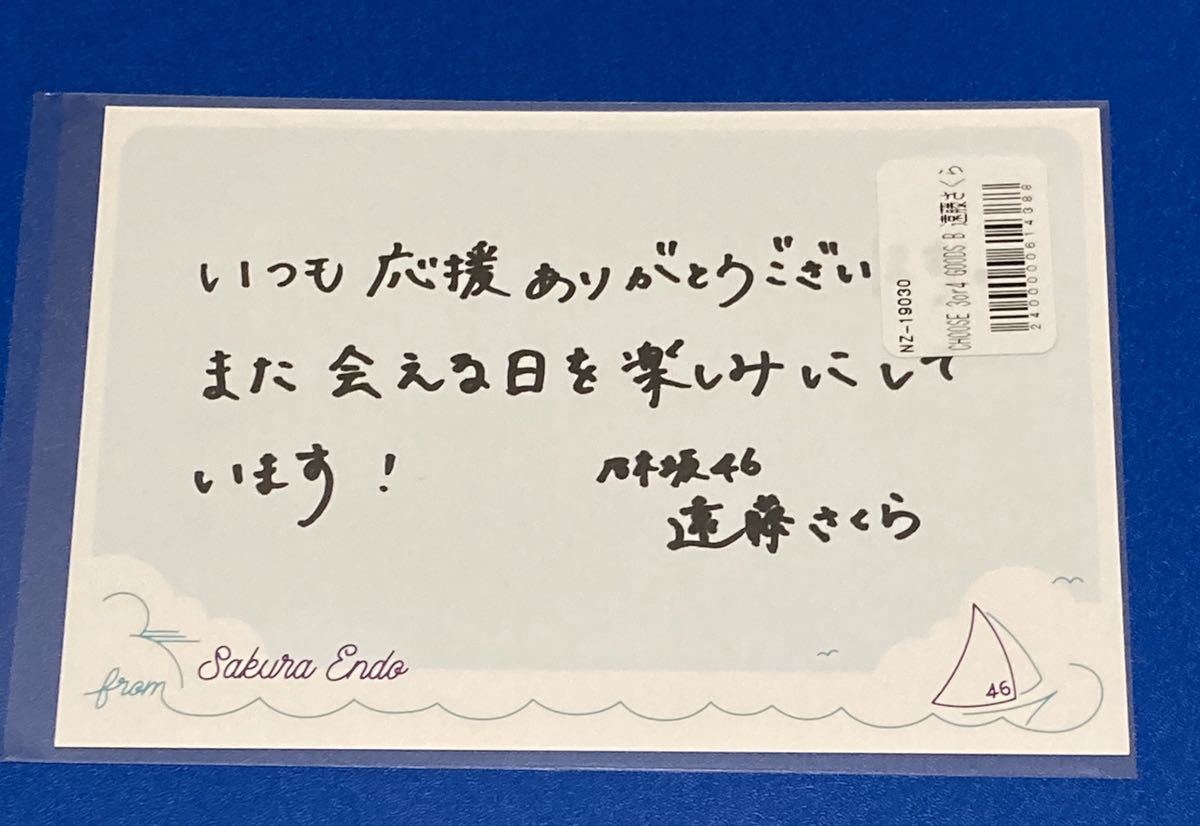 いつも 応援 ありがとうござい
また 会える日を楽しみにして
います！
乃木坂46
遠藤さくら
from Sakura Endo
46
NZ-19030
CHOOSE 3or4 GOODS B 遠藤さくら
2400000614388